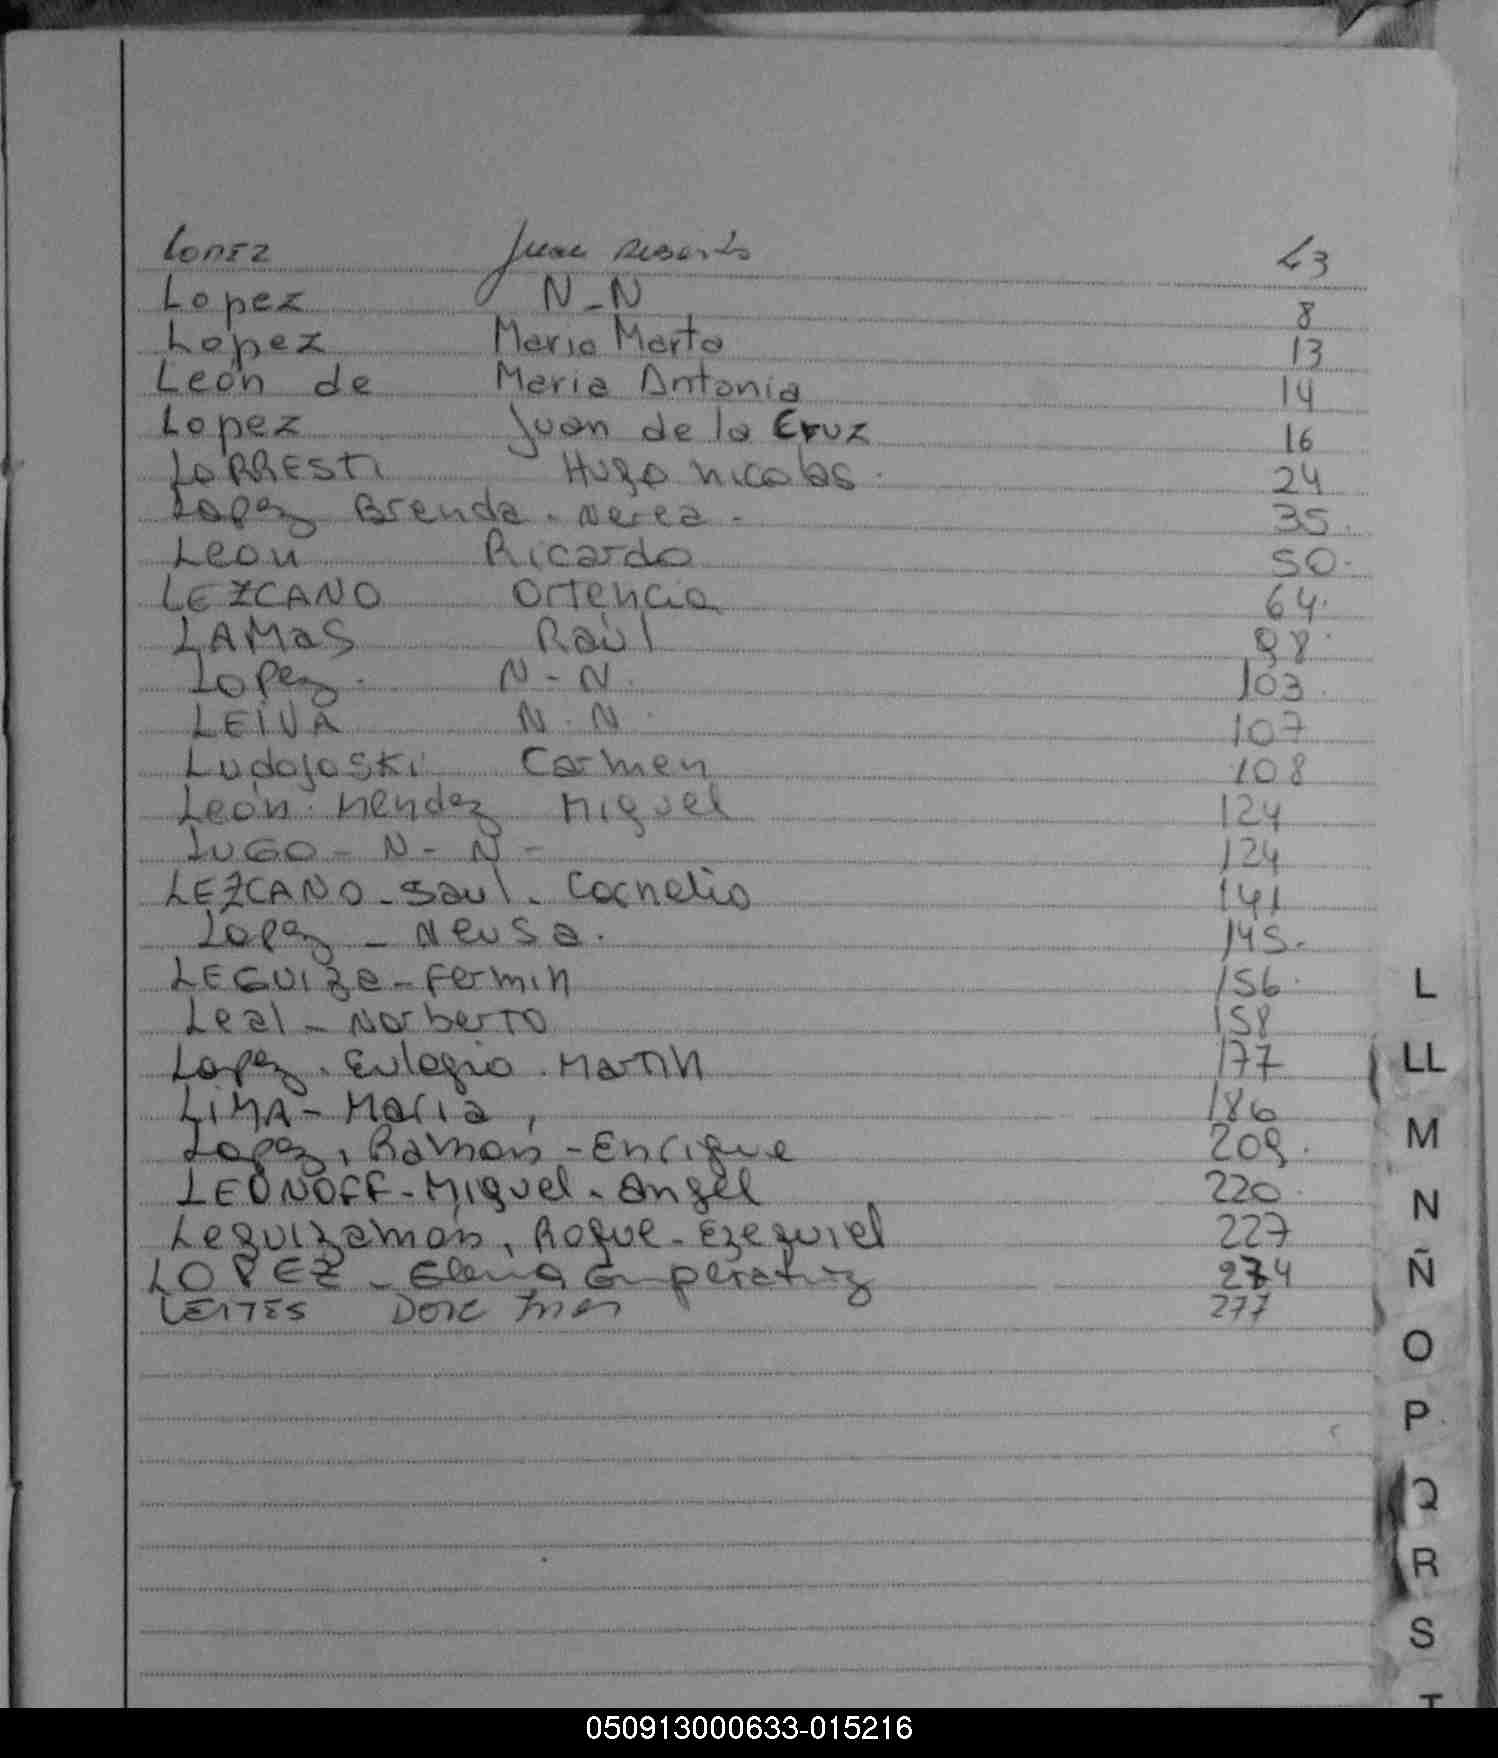 Lopez Juan Roberto 43
Lopez N-N 8
Lopez Maria Marta 13
León de Maria Antonia 14
Lopez Juan de la Cruz 16
LoRREsti Hugo nicolas. 24
Lopez Brenda. Nerea. 35.
Leon Ricardo 50.
LEZCANO Ortencia 64.
LAMas Raúl 98.
Lopez. N-N. 103.
LEIVA N.N. 107
Ludojoski Carmen 108
León. Mendez Miguel 124
LUGO-N-N- 124
LEZCANO-Saul. Cornelio 141
Lopez - Neusa. 145.
LEGUIza-Fermin 156.
Leal-Norberto 158
Lopez. Eulogio. Martin 177
LIMA-Maria, 186
Lopez, Ramón-Enrique 209.
LEONOFF-Miguel. Angel 220.
Leguizamón, Roque-Ezequiel 227
LOPEZ - Elena Emperatriz 274
LEITES 277
L
LL
M
N
Ñ
O
P
Q
R
S
T
050913000633-015216